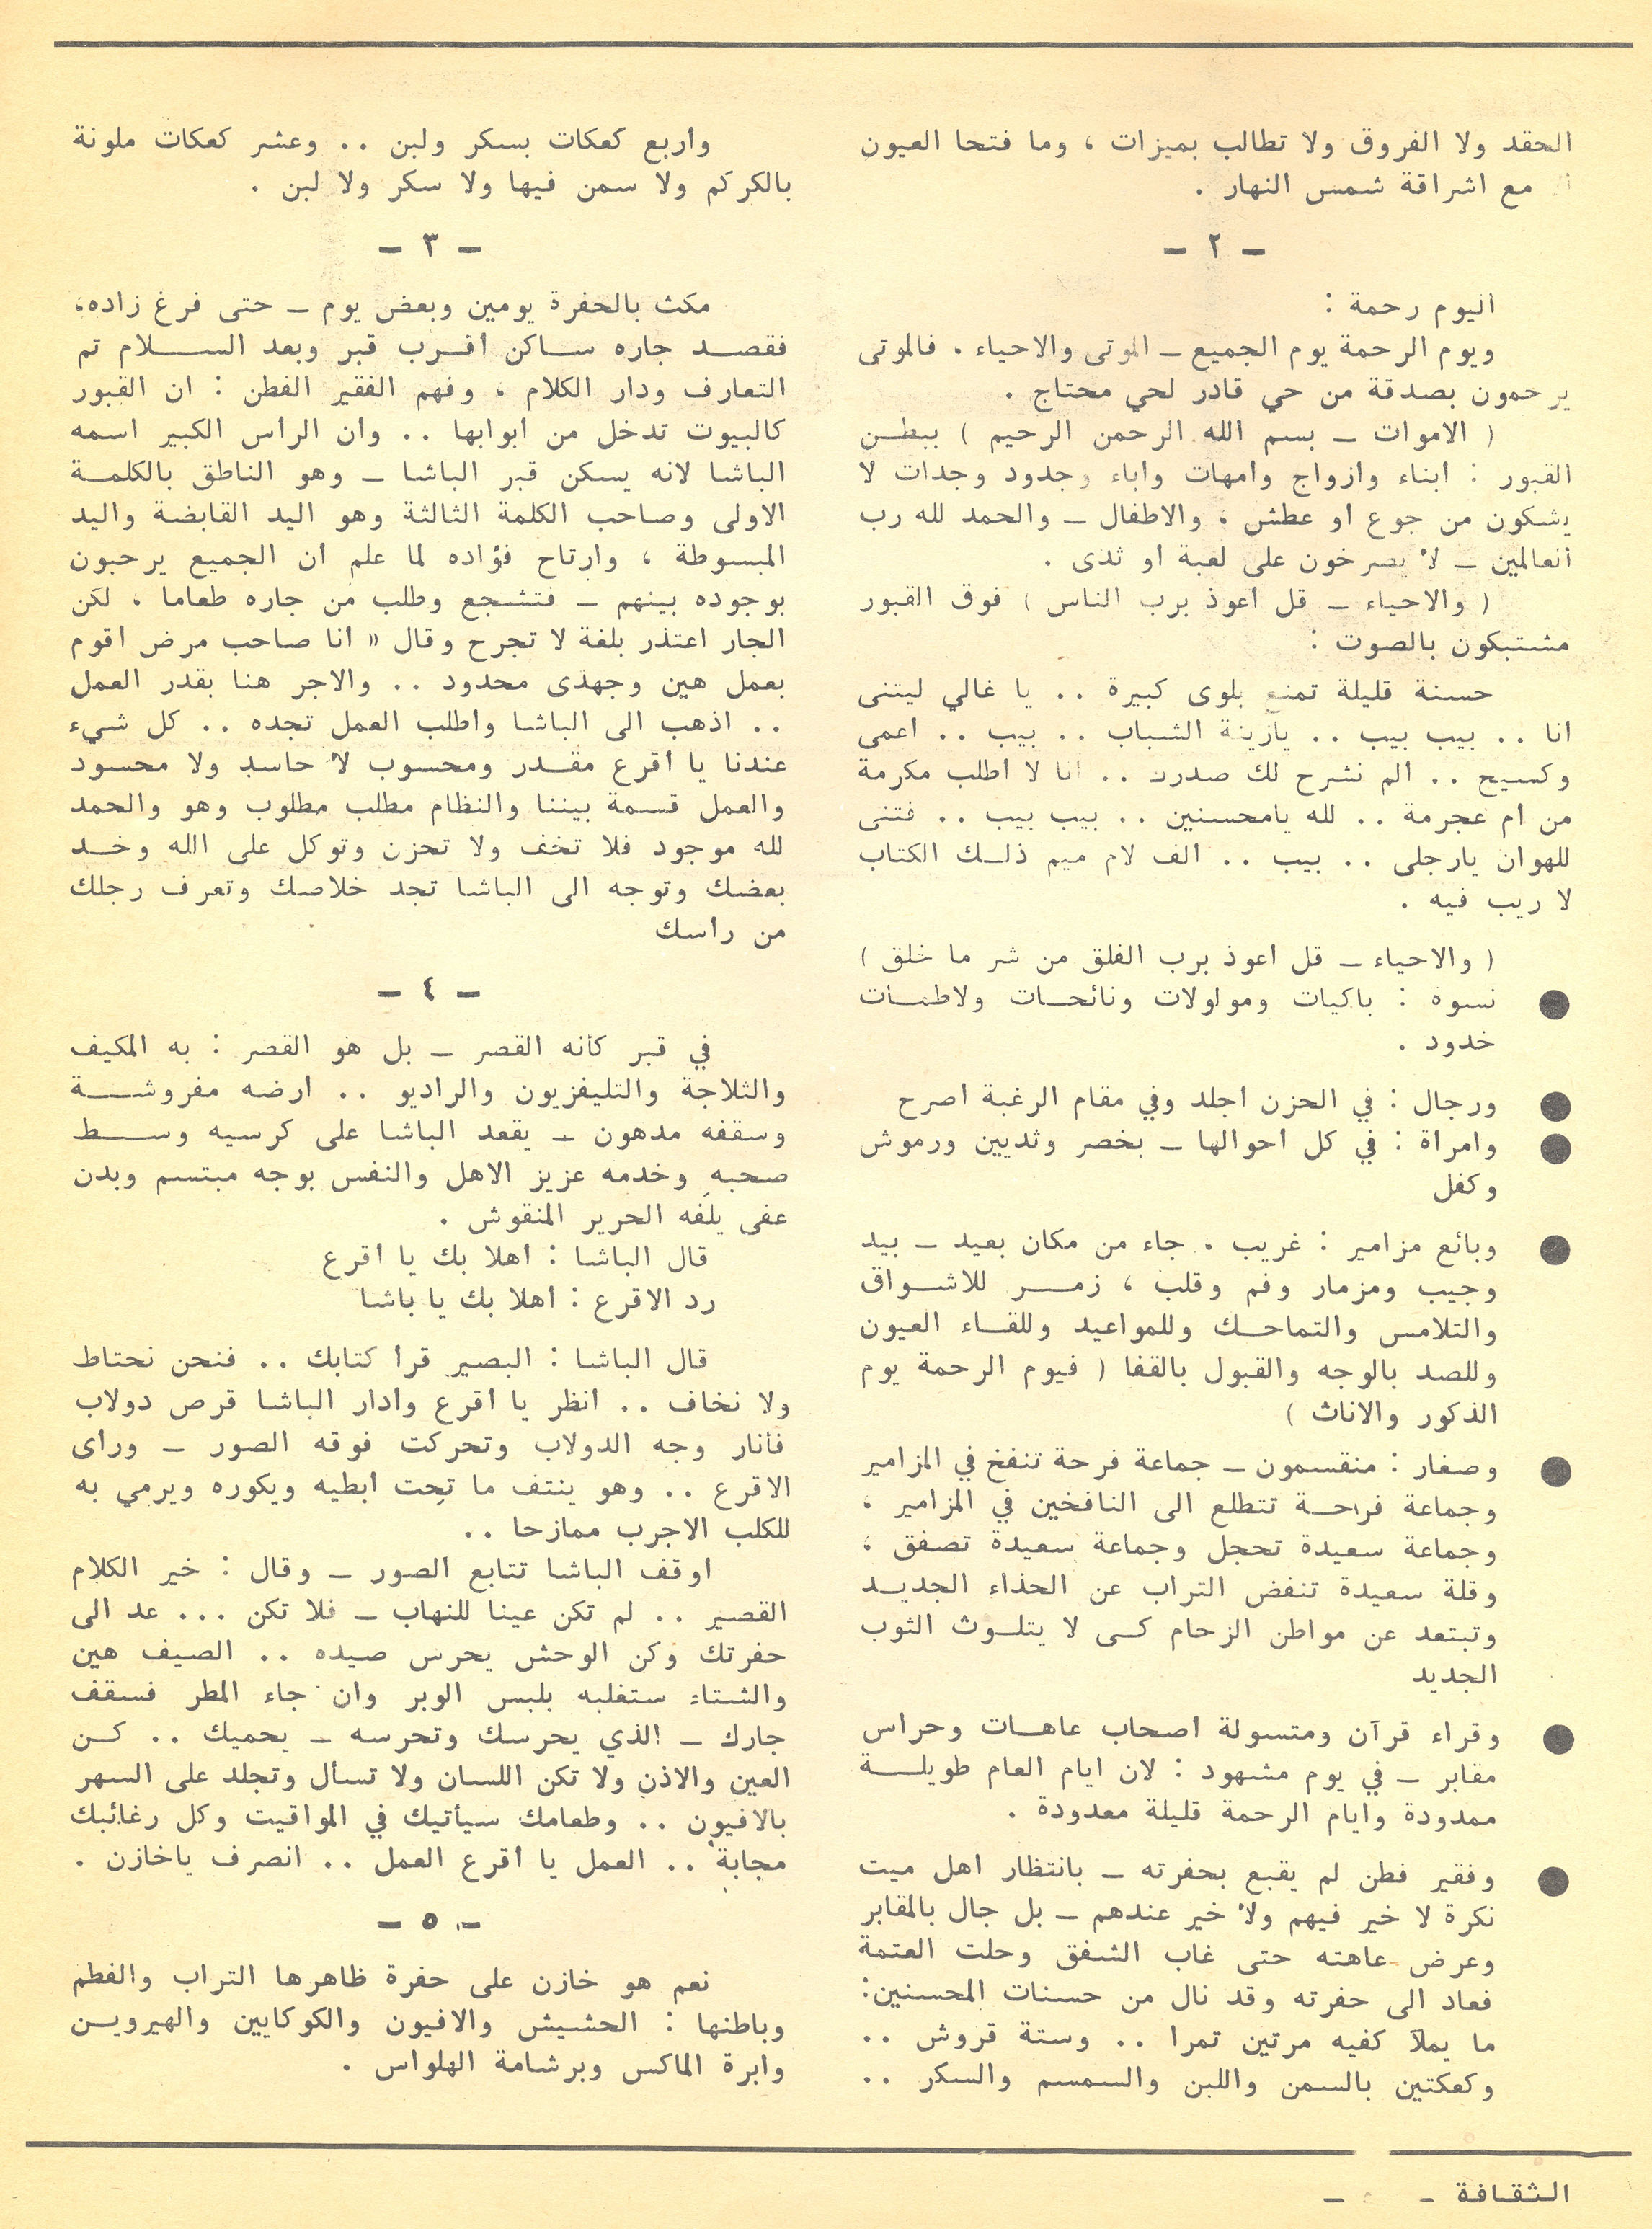 الحقد ولا الفروق ولا تطالب بميزات ، وما فتحا العيون
مع اشراقة شمس النهار .
– ٢ –
اليوم رحمة :
ويوم الرحمة يوم الجميع – الموتى والاحياء . فالموتى
يرحمون بصدقة من حي قادر لحي محتاج .
( الاموات – بسم الله الرحمن الرحيم ) ببطن
القبور : ابناء وازواج وامهات واباء وجدود وجدات لا
يشكون من جوع او عطش ، والاطفال – والحمد لله رب
العالمين – لا يصرخون على لعبة او ثدى .
( والاحياء – قل اعوذ برب الناس ) فوق القبور
مشتبكون بالصوت :
حسنة قليلة تمنع بلوى كبيرة .. يا غالي ليتنى
انا .. بيب بيب .. يازينة الشباب .. بيب .. اعمى
وكسيح .. الم نشرح لك صدرك .. انا لا اطلب مكرمة
من ام عجرمة .. لله يامحسنين .. بيب بيب .. فتنى
للهوان يارجلى .. بيب .. الف لام ميم ذلك الكتاب
لا ريب فيه .
( والاحياء – قل اعوذ برب الفلق من شر ما خلق )
● نسوة : باكيات ومولولات ونائحات ولاطمات
خدود .
● ورجال : في الحزن اجلد وفي مقام الرغبة اصرح
● وامراة : في كل احوالها – بخصر وثديين ورموش
وكفل
● وبائع مزامير : غريب . جاء من مكان بعيد – بيد
وجيب ومزمار وفم وقلب ، زمر للاشواق
والتلامس والتماحك وللمواعيد وللقاء العيون
وللصد بالوجه والقبول بالقفا ( فيوم الرحمة يوم
الذكور والاناث )
● وصغار : منقسمون – جماعة فرحة تنفخ في المزامير
وجماعة فراحة تتطلع الى النافخين في المزامير ،
وجماعة سعيدة تحجل وجماعة سعيدة تصفق ،
وقلة سعيدة تنفض التراب عن الحذاء الجديد
وتبتعد عن مواطن الزحام كى لا يتلوث الثوب
الجديد
● وقراء قرآن ومتسولة اصحاب عاهات وحراس
مقابر – في يوم مشهود : لان ايام العام طويلة
ممدودة وايام الرحمة قليلة معدودة .
● وفقير فطن لم يقبع بحفرته – بانتظار اهل ميت
نكرة لا خير فيهم ولا خير عندهم – بل جال بالمقابر
وعرض عاهته حتى غاب الشفق وحلت العتمة
فعاد الى حفرته وقد نال من حسنات المحسنين:
ما يملآ كفيه مرتين تمرا .. وستة قروش ..
وكعكتين بالسمن واللبن والسمسم والسكر ..
واربع كعكات بسكر ولبن .. وعشر كعكات ملونة
بالكركم ولا سمن فيها ولا سكر ولا لبن .
– ٣ –
مكث بالحفرة يومين وبعض يوم – حتى فرغ زاده،
فقصد جاره ساكن أقرب قبر وبعد السلام تم
التعارف ودار الكلام ، وفهم الفقير الفطن : ان القبور
كالبيوت تدخل من ابوابها .. وان الرأس الكبير اسمه
الباشا لانه يسكن قبر الباشا – وهو الناطق بالكلمة
الاولى وصاحب الكلمة الثالثة وهو اليد القابضة واليد
المبسوطة ، وارتاح فؤاده لما علم ان الجميع يرحبون
بوجوده بينهم – فتشجع وطلب من جاره طعاما . لكن
الجار اعتذر بلغة لا تجرح وقال « انا صاحب مرض اقوم
بعمل هين وجهدى محدود .. والاجر هنا بقدر العمل
.. اذهب الى الباشا واطلب العمل تجده .. كل شيء
عندنا يا أقرع مقدر ومحسوب لا حاسد ولا محسود
والعمل قسمة بيننا والنظام مطلب مطلوب وهو والحمد
لله موجود فلا تخف ولا تحزن وتوكل على الله وخد
بعضك وتوجه الى الباشا تجد خلاصك وتعرف رجلك
من رأسك
– ٤ –
في قبر كأنه القصر – بل هو القصر : به المكيف
والثلاجة والتليفزيون والراديو .. ارضه مفروشة
وسقفه مدهون – يقعد الباشا على كرسيه وسط
صحبه وخدمه عزيز الاهل والنفس بوجه مبتسم وبدن
عفى يلفه الحرير المنقوش .
قال الباشا : اهلا بك يا أقرع
رد الاقرع : اهلا بك يا باشا
قال الباشا : البصير قرأ كتابك .. فنحن نحتاط
ولا نخاف .. انظر يا أقرع وأدار الباشا قرص دولاب
فأنار وجه الدولاب وتحركت فوقه الصور – ورأى
الاقرع .. وهو ينتف ما تحت ابطيه ويكوره ويرمي به
للكلب الاجرب ممازحا ..
اوقف الباشا تتابع الصور – وقال : خير الكلام
القصير .. لم تكن عينا للنهاب – فلا تكن ... عد الى
حفرتك وكن الوحش يحرس صيده .. الصيف هين
والشتاء ستغلبه بلبس الوبر وان جاء المطر فسقف
جارك – الذي يحرسك وتحرسه – يحميك .. كن
العين والاذن ولا تكن اللسان ولا تسأل وتجلد على السهر
بالافيون .. وطعامك سيأتيك في المواقيت وكل رغائبك
مجابة .. العمل يا أقرع العمل .. انصرف ياخازن .
– ٥ –
نعم هو خازن على حفرة ظاهرها التراب والفطم
وباطنها : الحشيش والافيون والكوكايين والهيروين
وابرة الماكس وبرشامة الهلواس .
الثقافة – –